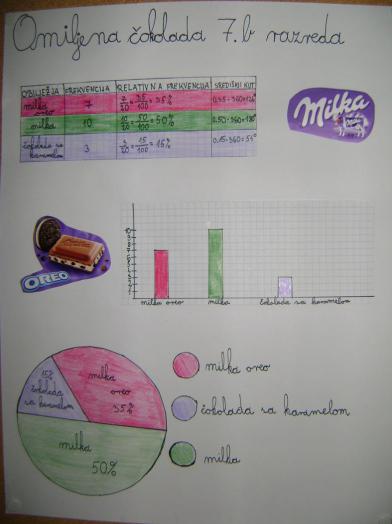 Omiljena čokolada 7.b razreda
OBILJEŽJA FREKVENCIJA RELATIVNA FREKVENCIJA SREDIŠNJI KUT
milka oreo 7 7/20 = 35/100 = 35% 0.35·360=126°
milka 10 10/20 = 50/100 = 50% 0.50·360=180°
čokolada sa karamelom 3 3/20 = 15/100 = 15% 0.15·360=54°
Milka
OREO
10
9
8
7
6
5
4
3
2
1
milka oreo milka čokolada sa karamelom
15%
čokolada
sa karamelom
milka
oreo
35%
milka
50%
milka oreo
čokolada sa karamelom
milka